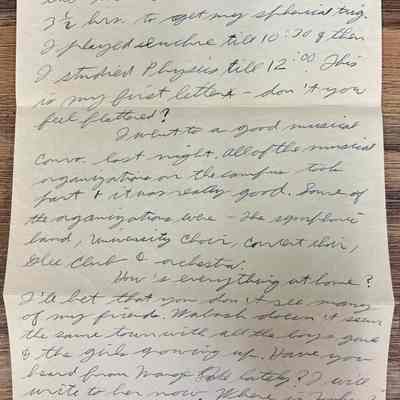 3½ hrs. to get my spherical trig.
I played euchre till 10:30 & then
I studied Physics till 12:00. This
is my first letter - don't you
feel flattered?
I went to a good musical
Convo. last night. All of the musical
organizations on the campus took
part & it was really good. Some of
the organizations were - the symphonic
band, University Choir, Concert Choir,
Glee Club & orchestra.
How's everything at home?
I'll bet that you don't see many
of my friends. Wabash doesn't seem
the same town with all the boys gone
& the girls growing up. Have you
heard from lately? I will
write to her now. Where is